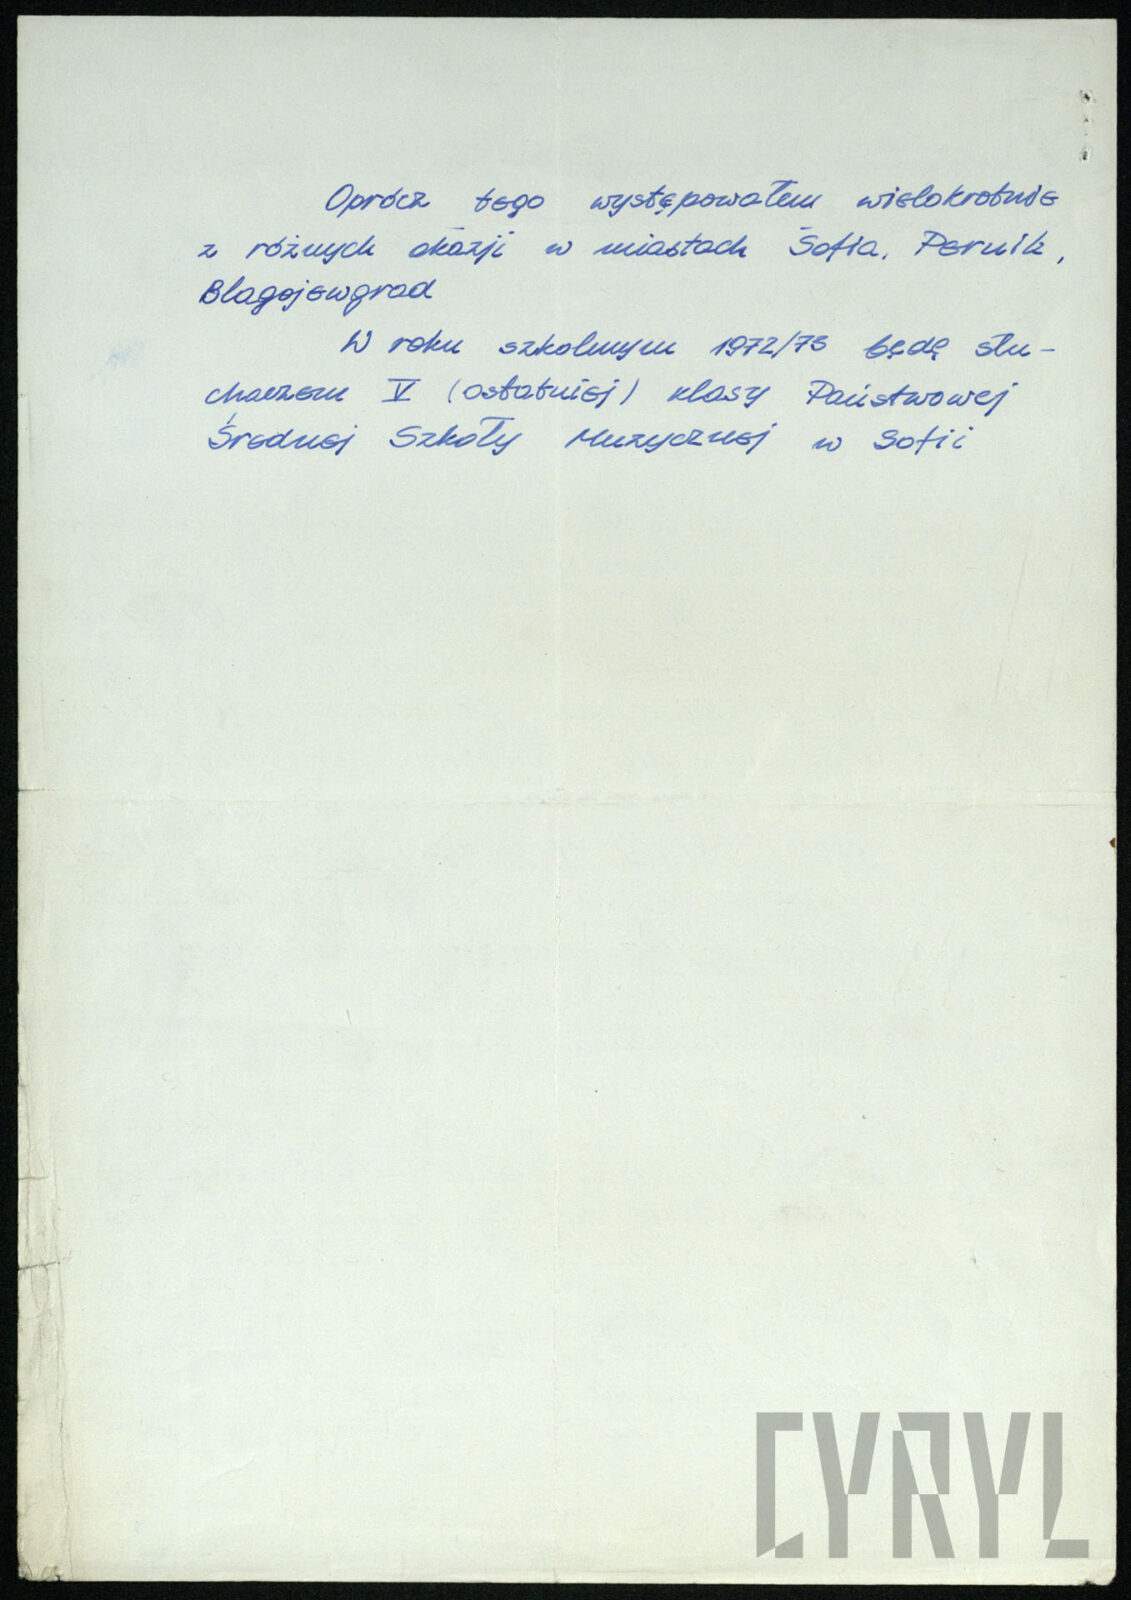 Oprócz tego występowałem wielokrotnie
z różnych okazji w miastach Sofia, Pernik,
Blagojewgrad
W roku szkolnym 1972/73 będę słu-
chaczem V (ostatniej) klasy Państwowej
Średniej Szkoły Muzycznej w Sofii
CYRYL